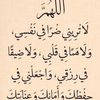 اللَّهُمَّ
لَا تُرِينِي ضُرًّا فِي نَفْسِي،
وَلَا هَمًّا فِي قَلْبِي، وَلَا ضِيقًا
فِي رِزْقِي، وَاجْعَلْنِي فِي
حِفْظِكَ وَأَمَانِكَ وَعِنَايَتِكَ